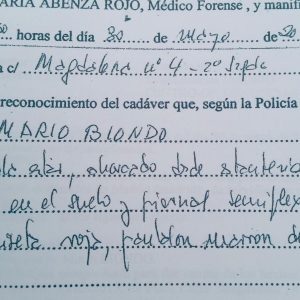 ARIA ABENZA ROJO, Médico Forense , y manifi
horas del día 30 de Mayo de 20
a c/ Magdalena nº 4 - 2º Izqda
reconocimiento del cadáver que, según la Policía
MARIO BIONDO
ahorcado desde estantería
en el suelo y piernas semiflex
roja, pantalón marrón de